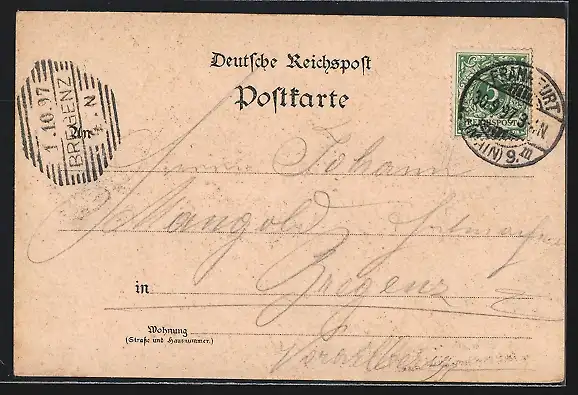 Deutsche Reichspost
Postkarte
1.10.97
BREGENZ
N
An
5
REICHSPOST
FRANKFURT
(MAIN) 9.
Johann
Mangold
in Bregenz
Wohnung
(Straße und Hausnummer.)
Vorarlberg